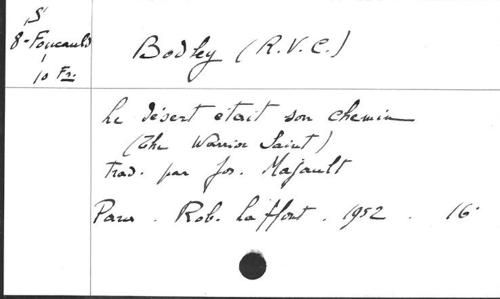 S
8-Foucauld
10 Fr.
Bodley (R.V.C.)
Le désert était son chemin
(The Warrior Saint)
trad. par Jos. Majault
Paris. Rob. Laffont. 1952. 16°